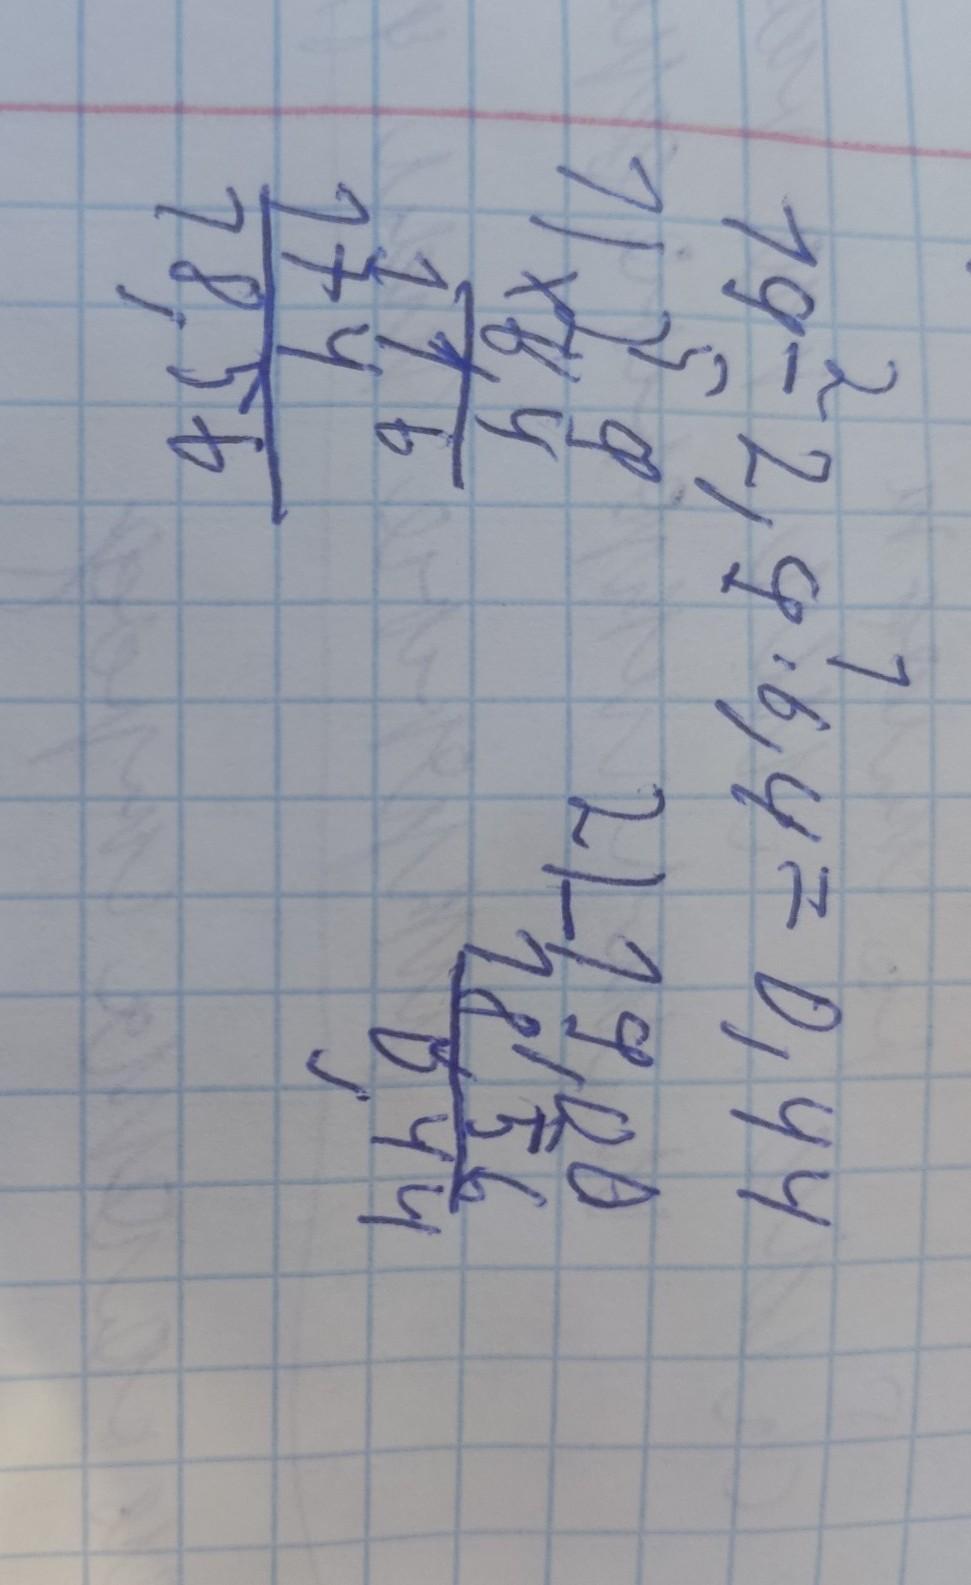 2 1
19 - 2,9 · 6,4 = 0,44
5
1) × 2 9
6 4
1 1 6
1 7 4
1 8,5 6
2) - 19,00
18,56
0,44